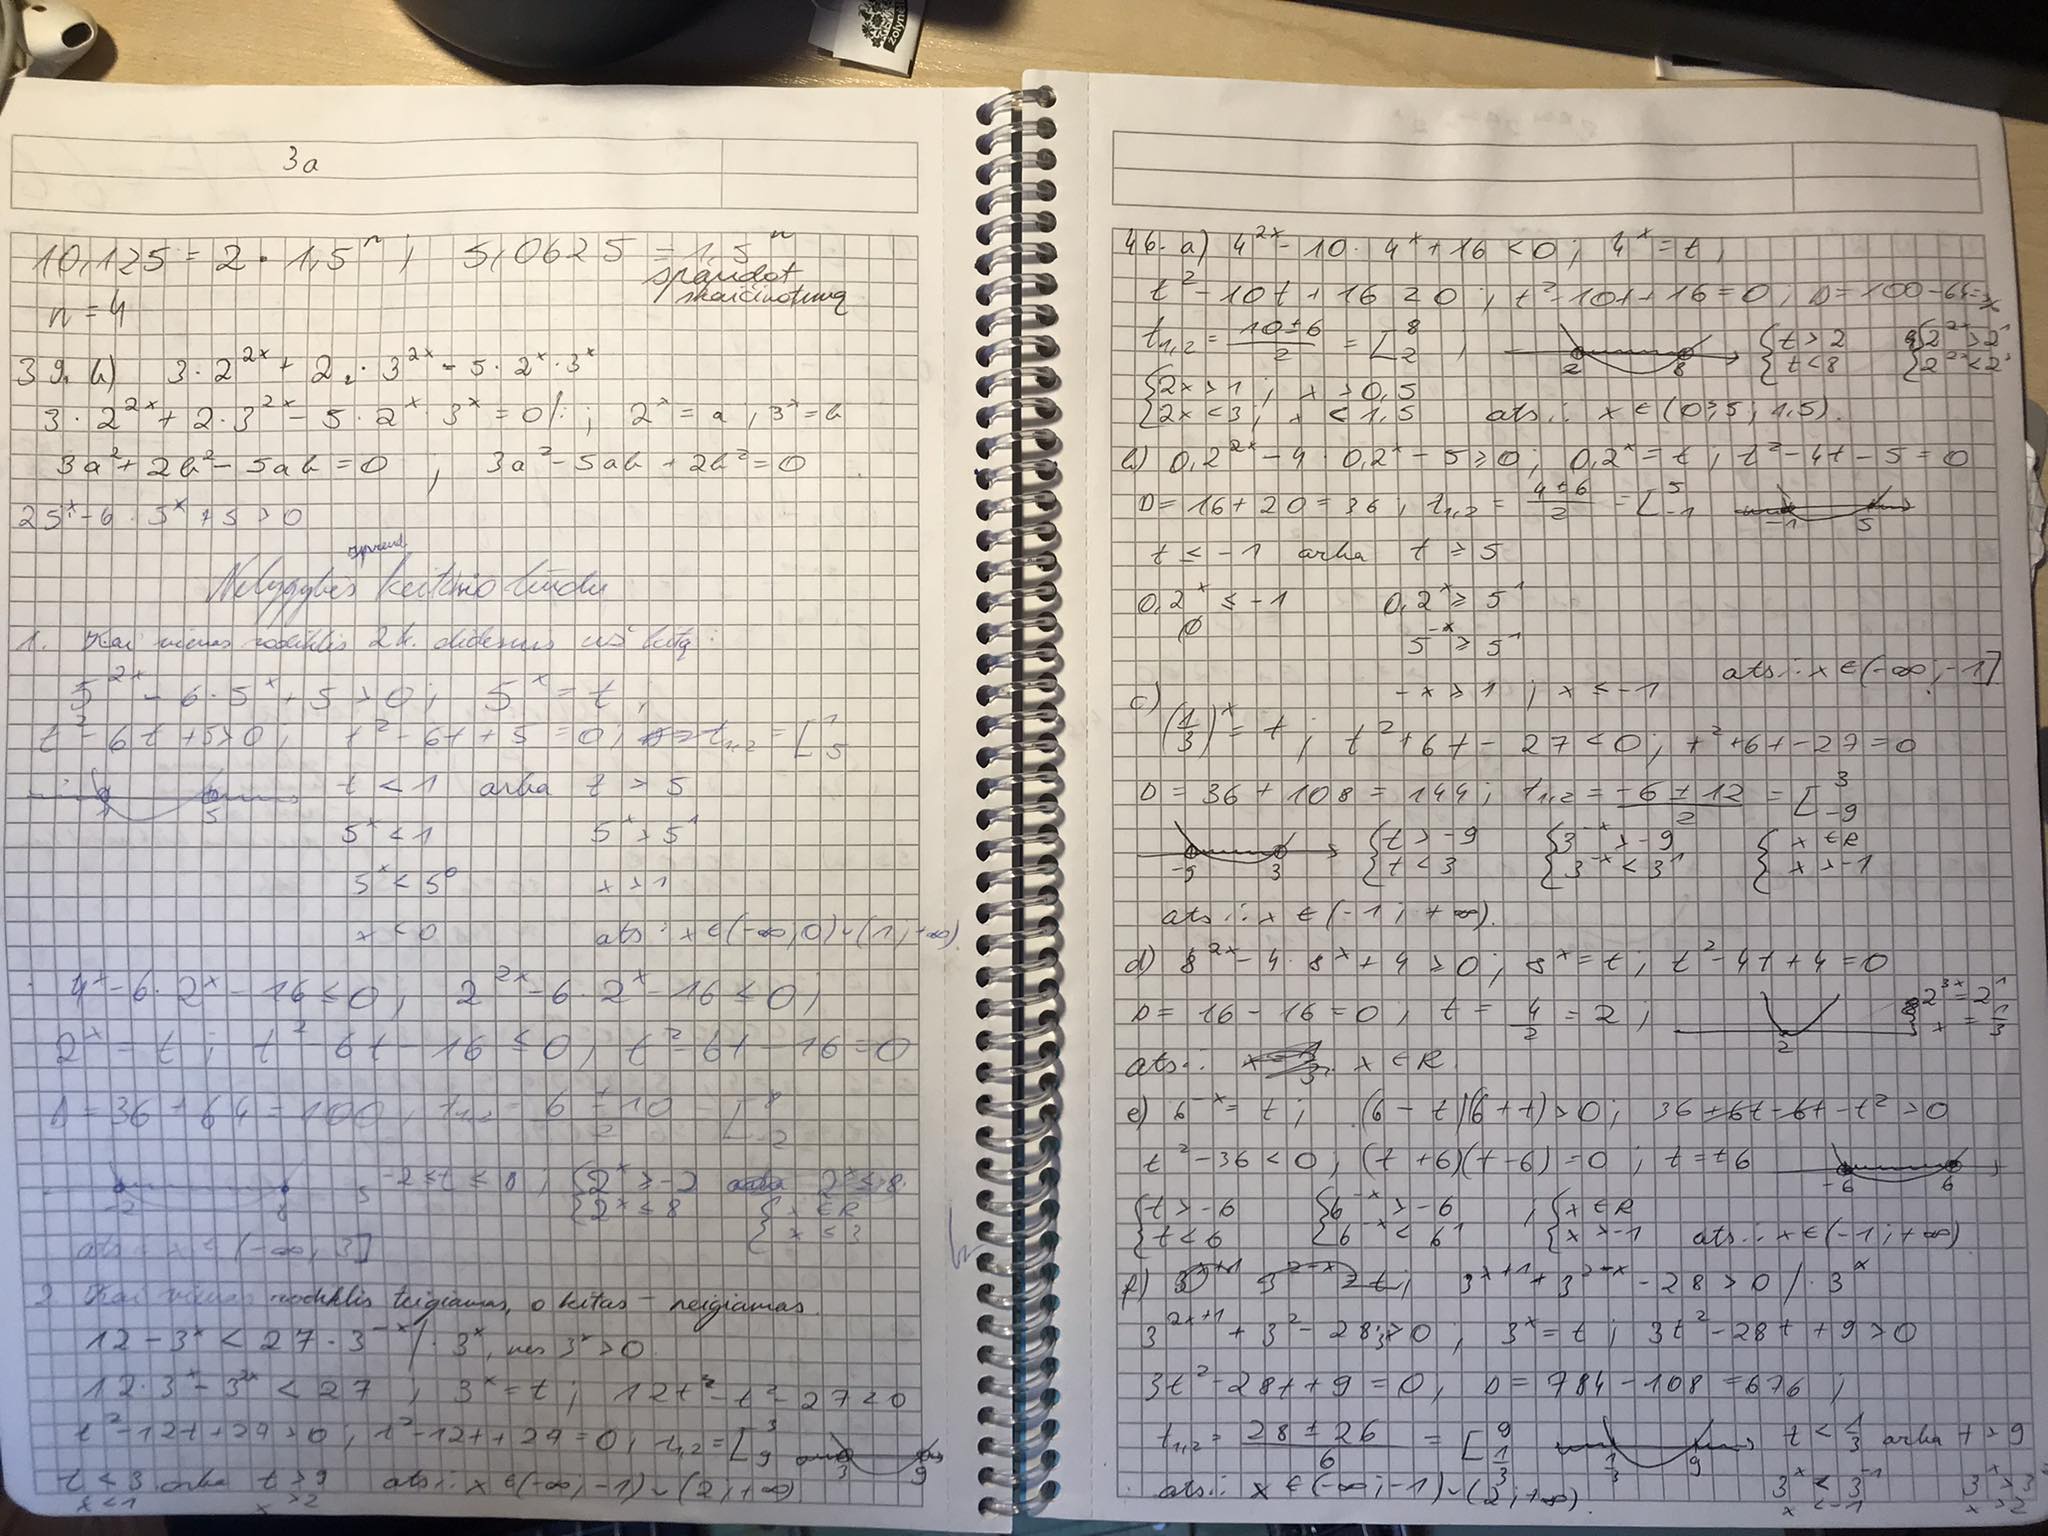 žolynė
3a
10,125 = 2 · 1,5ⁿ ; 5,0625 = 1,5ⁿ
spaudot
skaičiuotuvą
n = 4
39. b) 3 · 2^2x + 2 · 3^2x - 5 · 2^x · 3^x
3 · 2^2x + 2 · 3^2x - 5 · 2^x · 3^x = 0 /: ; 2^x = a ; 3^x = b
3a² + 2b² - 5ab = 0 ; 3a² - 5ab + 2b² = 0
25^x - 6 · 5^x + 5 > 0
Nelygybės keitinio būdu
1. Kai vienas rodiklis 2k. didesnis už kitą.
5^2x - 6 · 5^x + 5 > 0 ; 5^x = t ;
t² - 6t + 5 > 0 ; t² - 6t + 5 = 0 ; t1,2 = [ 1 5
1 5 t < 1 arba t > 5
5^x < 1 5^x > 5^1
5^x < 5^0 x > 1
x < 0 ats.: x ∈ (-∞; 0) ∪ (1; +∞).
4^x - 6 · 2^x - 16 ≤ 0 ; 2^2x - 6 · 2^x - 16 ≤ 0 ;
2^x = t ; t² - 6t - 16 ≤ 0 ; t² - 6t - 16 = 0
D = 36 + 64 = 100 ; t1,2 = (6 ± 10)/2 = [ 8 -2
-2 8 -2 ≤ t ≤ 8 ; { 2^x ≥ -2 2^x ≤ 8
{ x ∈ R x ≤ 3
ats.: x ∈ (-∞; 3]
2. Kai vienas rodiklis teigiamas, o kitas - neigiamas.
12 - 3^x < 27 · 3^-x / · 3^x, nes 3^x > 0.
12 · 3^x - 3^2x < 27 ; 3^x = t ; 12t - t² - 27 < 0
t² - 12t + 27 > 0 ; t² - 12t + 27 = 0 ; t1,2 = [ 3 9 3 9
t < 3 arba t > 9 ats.: x ∈ (-∞; -1) ∪ (2; +∞)
x < 1 x > 2
46. a) 4^2x - 10 · 4^x + 16 < 0 ; 4^x = t ;
t² - 10t + 16 < 0 ; t² - 10t + 16 = 0 ; D = 100 - 64 = 36
t1,2 = (10 ± 6)/2 = [ 8 2 , 2 8 { t > 2 t < 8 { 2^2x > 2^1 2^2x < 2^3
{ 2x > 1 ; x > 0,5
2x < 3 ; x < 1,5 ats.: x ∈ (0,5 ; 1,5).
b) 0,2^2x - 4 · 0,2^x - 5 ≥ 0 ; 0,2^x = t ; t² - 4t - 5 = 0
D = 16 + 20 = 36 ; t1,2 = (4 ± 6)/2 = [ 5 -1 -1 5
t ≤ -1 arba t ≥ 5
0,2^x ≤ -1 0,2^x ≥ 5^1
∅ 5^-x ≥ 5^1
-x ≥ 1 ; x ≤ -1 ats.: x ∈ (-∞; -1]
c) (1/3)^x = t ; t² + 6t - 27 < 0 ; t² + 6t - 27 = 0
D = 36 + 108 = 144 ; t1,2 = (-6 ± 12)/2 = [ 3 -9
-9 3 { t > -9 t < 3 { 3^-x > -9 3^-x < 3^1 { x ∈ R x > -1
ats.: x ∈ (-1; +∞).
d) 8^2x - 4 · 8^x + 4 ≥ 0 ; 8^x = t ; t² - 4t + 4 = 0
D = 16 - 16 = 0 ; t = 4/2 = 2 ; 2 2^3x = 2^1 x = 1/3
ats.: x ∈ R.
e) 6^-x = t ; (6 - t)(6 + t) > 0 ; 36 + 6t - 6t - t² > 0
t² - 36 < 0 ; (t + 6)(t - 6) = 0 ; t = ±6 -6 6
{ t > -6 t < 6 { 6^-x > -6 6^-x < 6^1 ; { x ∈ R x > -1 ats.: x ∈ (-1; +∞)
f) 3^x+1 3^2-x = t ; 3^x+1 + 3^2-x - 28 > 0 / · 3^x
3^2x+1 + 3² - 28 · 3^x > 0 ; 3^x = t ; 3t² - 28t + 9 > 0
3t² - 28t + 9 = 0 ; D = 784 - 108 = 676 ;
t1,2 = (28 ± 26)/6 = [ 9 1/3 1/3 9 t < 1/3 arba t > 9
ats.: x ∈ (-∞; -1) ∪ (2; +∞). 3^x < 3^-1 3^x > 3^2
x < -1 x > 2